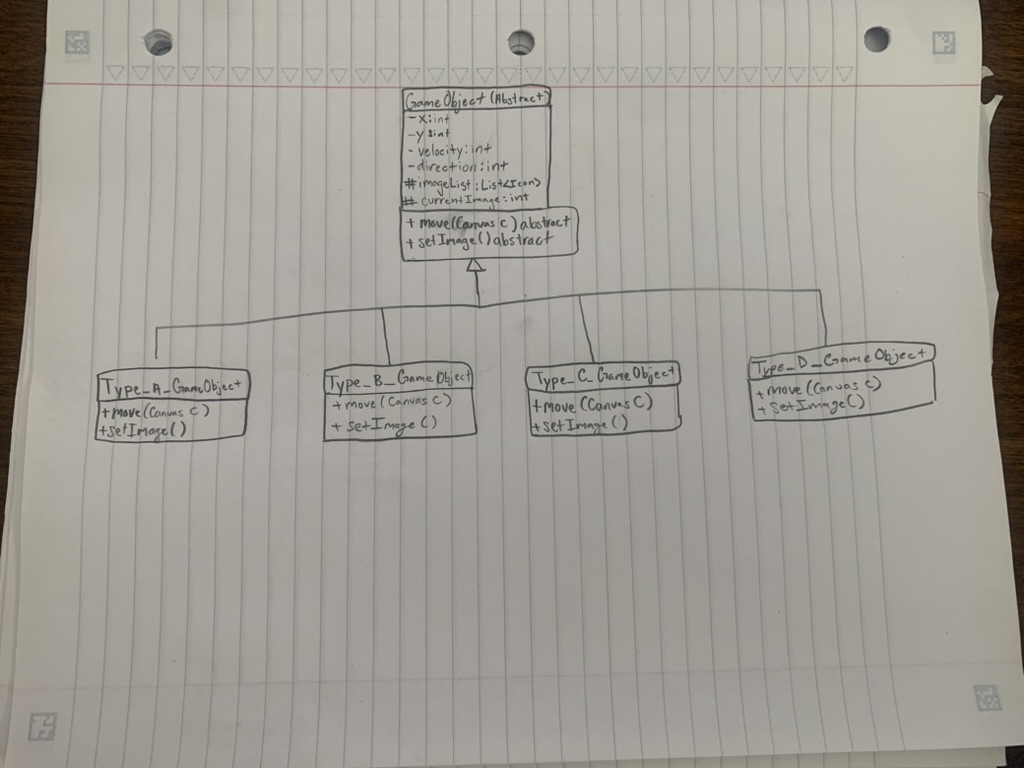 GameObject (Abstract)
- x: int
- y: int
- velocity: int
- direction: int
# imageList: List<Icon>
# currentImage: int
+ move(Canvas c) abstract
+ setImage() abstract
Type_A_GameObject
+move(Canvas C)
+setImage()
Type_B_GameObject
+move(Canvas C)
+ setImage()
Type_C_GameObject
+move(Canvas C)
+setImage()
Type_D_GameObject
+move(Canvas C)
+ setImage()